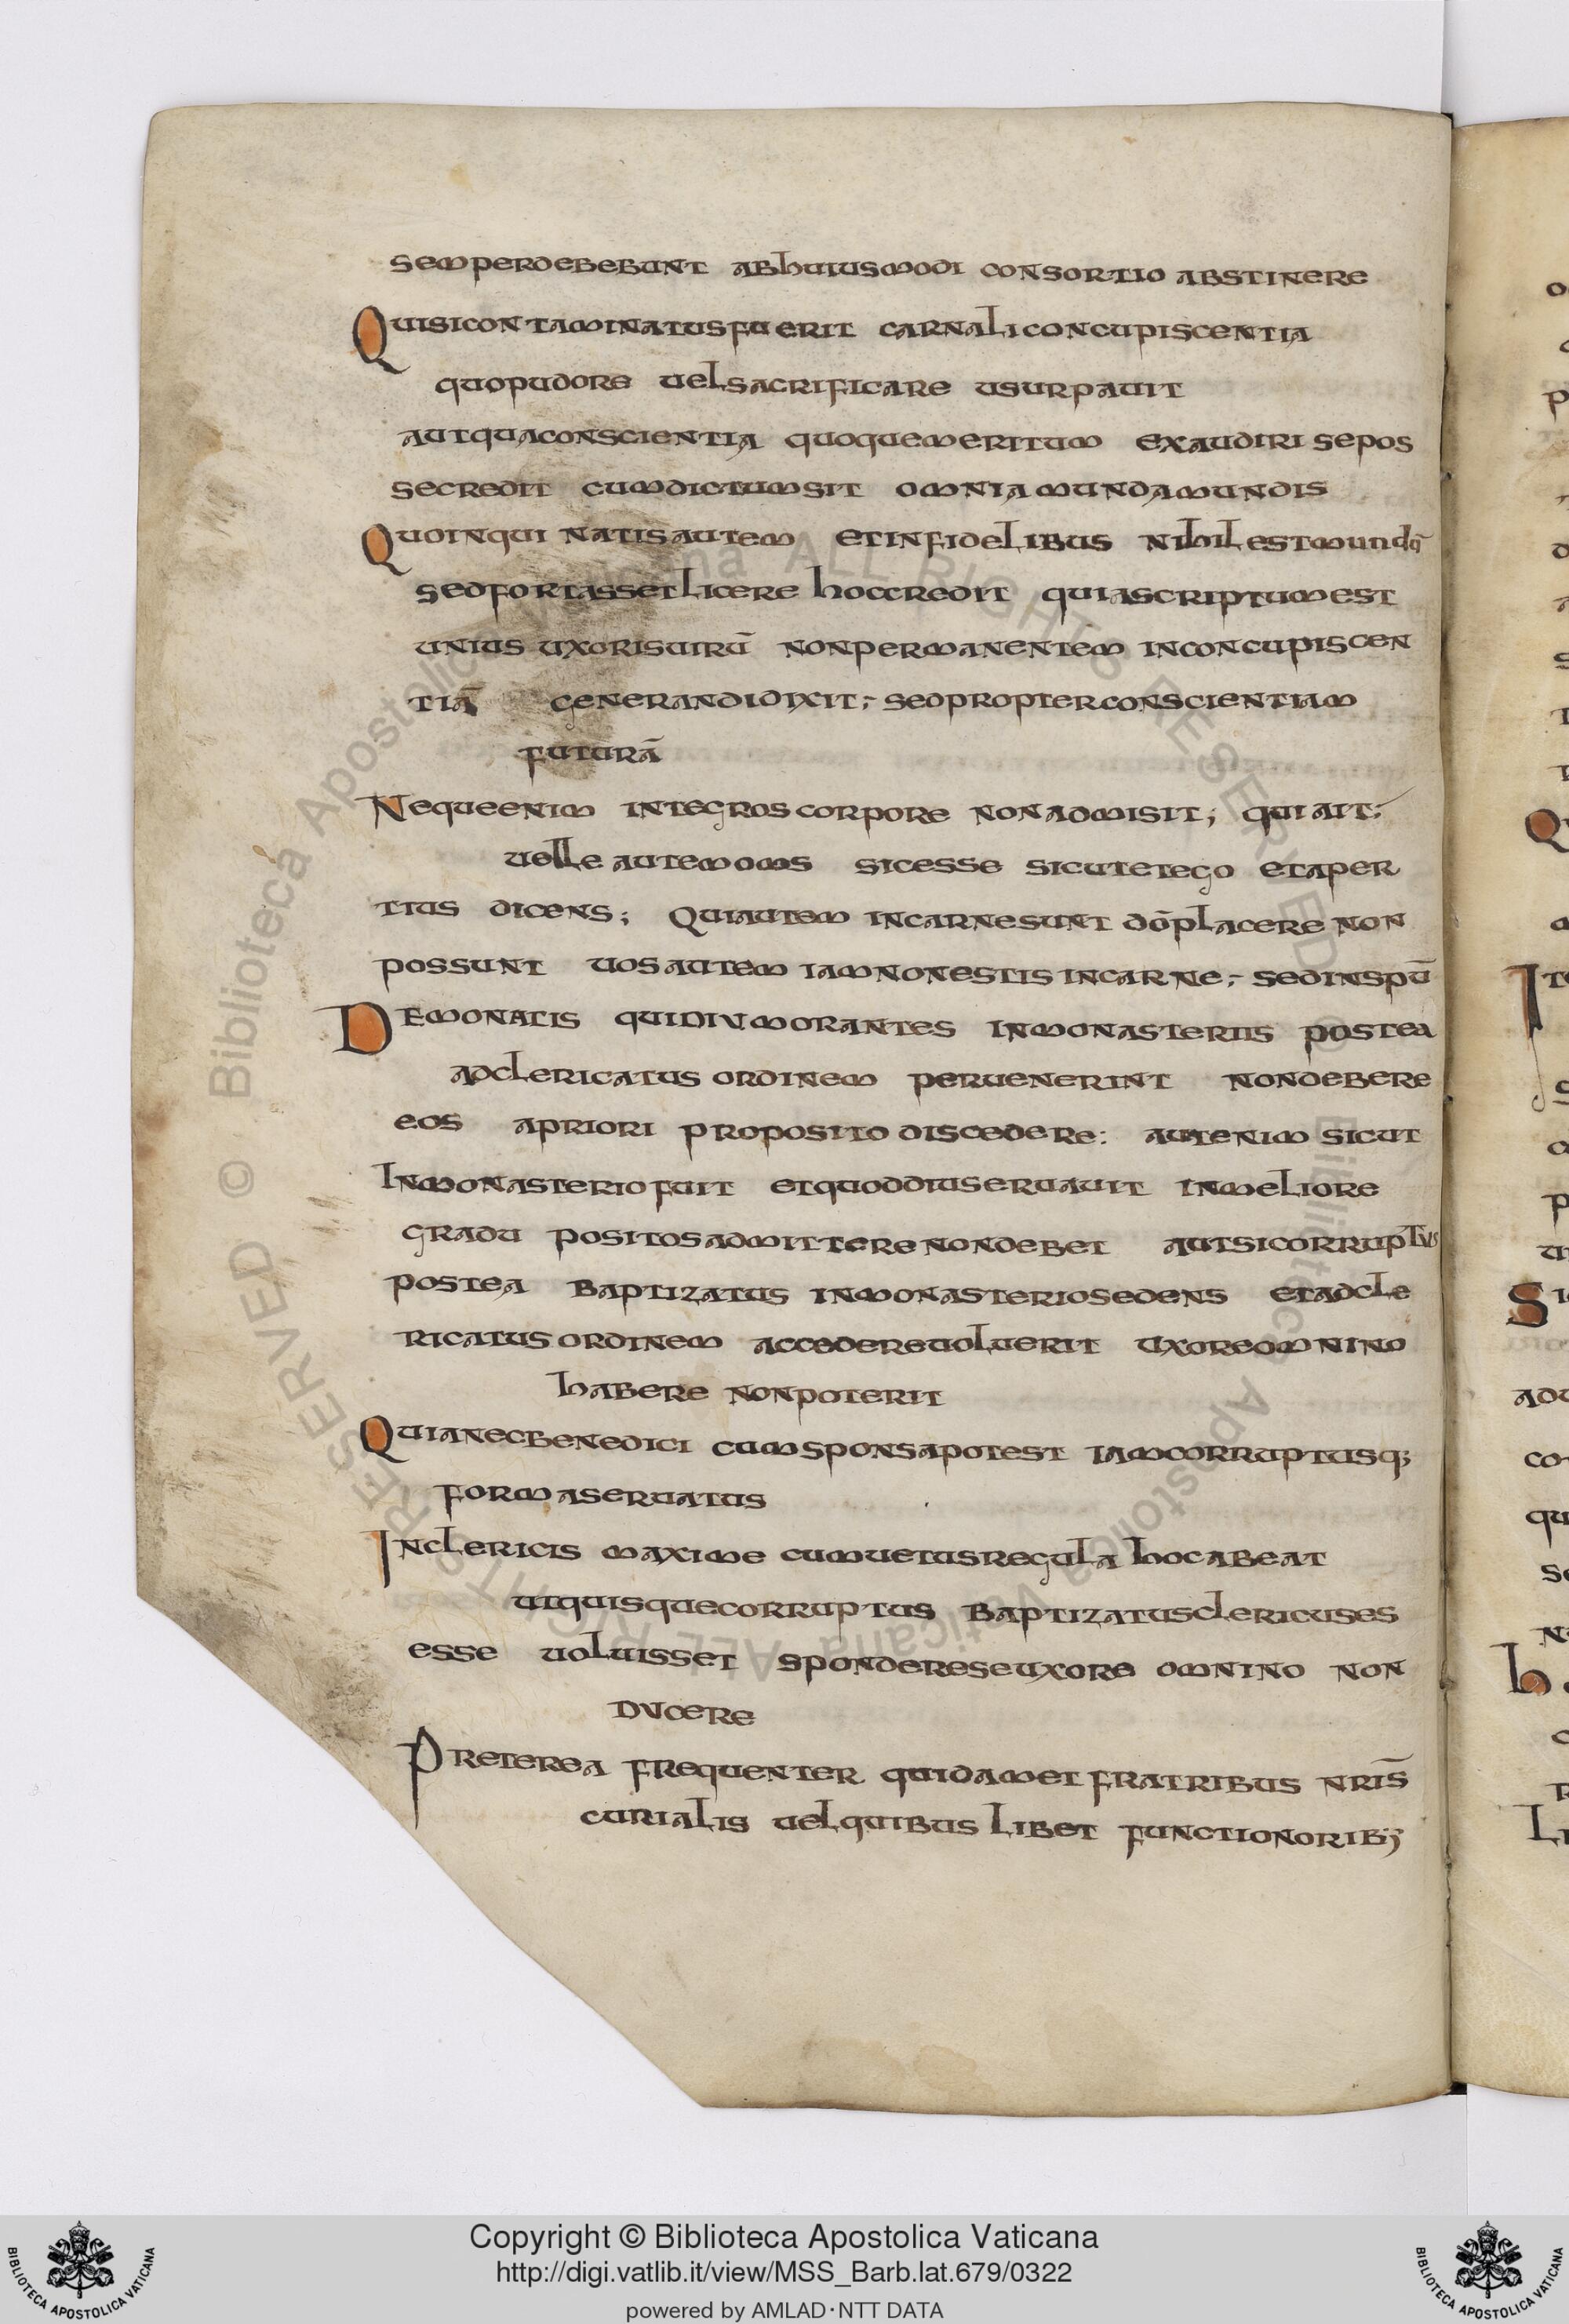 semperdebebunt abhuiusmodi consortio abstinere
Quisicontaminatusfuerit carnaliconcupiscentia
quopudore uelsacrificare usurpauit
autquaconscientia quoquemeritum exaudiri sepos
secredit cumdictumsit omniamundamundis
Quoinquinatisautem etinfidelibus nihilestmundū
sedfortassetlicere hoccredit quiascriptumest
unius uxorisuirū nonpermanentem inconcupiscen
tiā generandidixit; sedpropterconscientiam
futurā
Nequeenim integroscorpore nonadmisit; quiait;
uelleautemomS sicesse sicutetego etaper
tius dicens; Quiautem incarnesunt dōplacere non
possunt uosautem iamnonestisincarne; sedinspū
Demonacis quidiumorantes inmonasteriis postea
adclericatus ordinem peruenerint nondebere
eos apriori proposito discedere: autenim sicut
Inmonasteriofuit etquoddiuseruauit inmeliore
gradu positosadmitterenondebet autsicorruptus
postea baptizatus inmonasteriosedens etadcle
ricatusordinem accedereuoluerit uxoreomnino
habere nonpoterit
Quianecbenedici cumsponsapotest iamcorruptusq;
formaseruatus
Inclericis maxime cumuetusregula hocabeat
utquisquecorruptus baptizatusclericuses
esse uoluisset spondereseuxore omnino non
ducere
Preterea frequenter quidamet fratribus nrīs
curialis uelquibus libet functionorib;
© Biblioteca Apostolica Vaticana ALL RIGHTS RESERVED
© Biblioteca Apostolica Vaticana ALL RIGHTS RESERVED
Copyright © Biblioteca Apostolica Vaticana
http://digi.vatlib.it/view/MSS_Barb.lat.679/0322
powered by AMLAD·NTT DATA
BIBLIOTECA APOSTOLICA VATICANA
BIBLIOTECA APOSTOLICA VATICANA